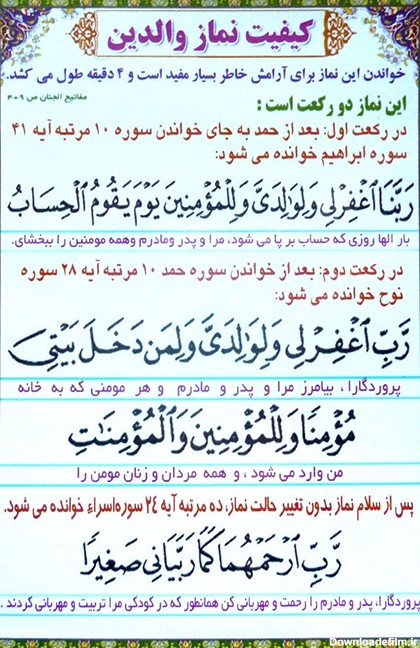 کیفیت نماز والدین
خواندن این نماز برای آرامش خاطر بسیار مفید است و ۴ دقیقه طول می کشد.
مفاتیح الجنان ص ۴۰۹
این نماز دو رکعت است :
در رکعت اول: بعد از حمد به جای خواندن سوره ۱۰ مرتبه آیه ۴۱
سوره ابراهیم خوانده می شود:
رَبَّنَا اغْفِرْ لِي وَلِوَالِدَيَّ وَلِلْمُؤْمِنِينَ يَوْمَ يَقُومُ الْحِسَابُ
بار الها روزی که حساب بر پا می شود، مرا و پدر ومادرم وهمه مومنین را ببخشای.
در رکعت دوم: بعد از خواندن سوره حمد ۱۰ مرتبه آیه ۲۸ سوره
نوح خوانده می شود:
رَبِّ اغْفِرْ لِي وَلِوَالِدَيَّ وَلِمَن دَخَلَ بَيْتِيَ
پروردگارا ، بیامرز مرا و پدر و مادرم و هر مومنی که به خانه
مُؤْمِنًا وَلِلْمُؤْمِنِينَ وَالْمُؤْمِنَاتِ
من وارد می شود ، و همه مردان و زنان مومن را
پس از سلام نماز بدون تغییر حالت نماز، ده مرتبه آیه ۲۴ سوره اسراء خوانده می شود.
رَبِّ ارْحَمْهُمَا كَمَا رَبَّيَانِي صَغِيرًا
پروردگارا، پدر و مادرم را رحمت و مهربانی کن همانطور که در کودکی مرا تربیت و مهربانی کردند .
Downloadefilm.ir